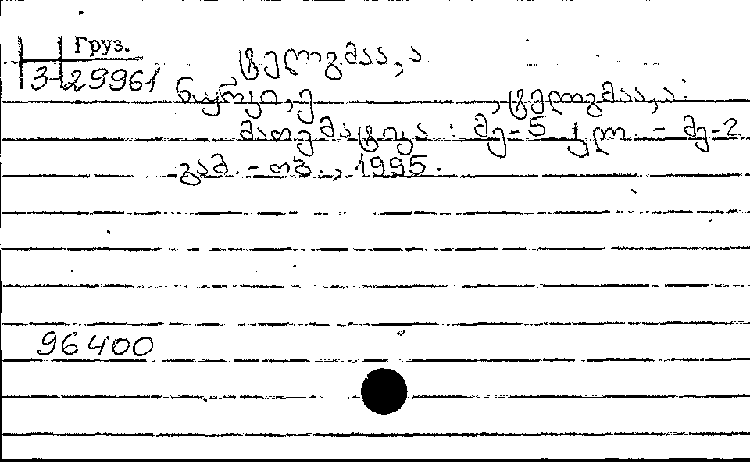 Груз.
ტელგმაა, ა
3-29961
ნურკი, ე , ტელგმაა, ა:
მათემატიკა : მე-5 კლ. - მე-2
გამ. - თბ., 1995.
96400